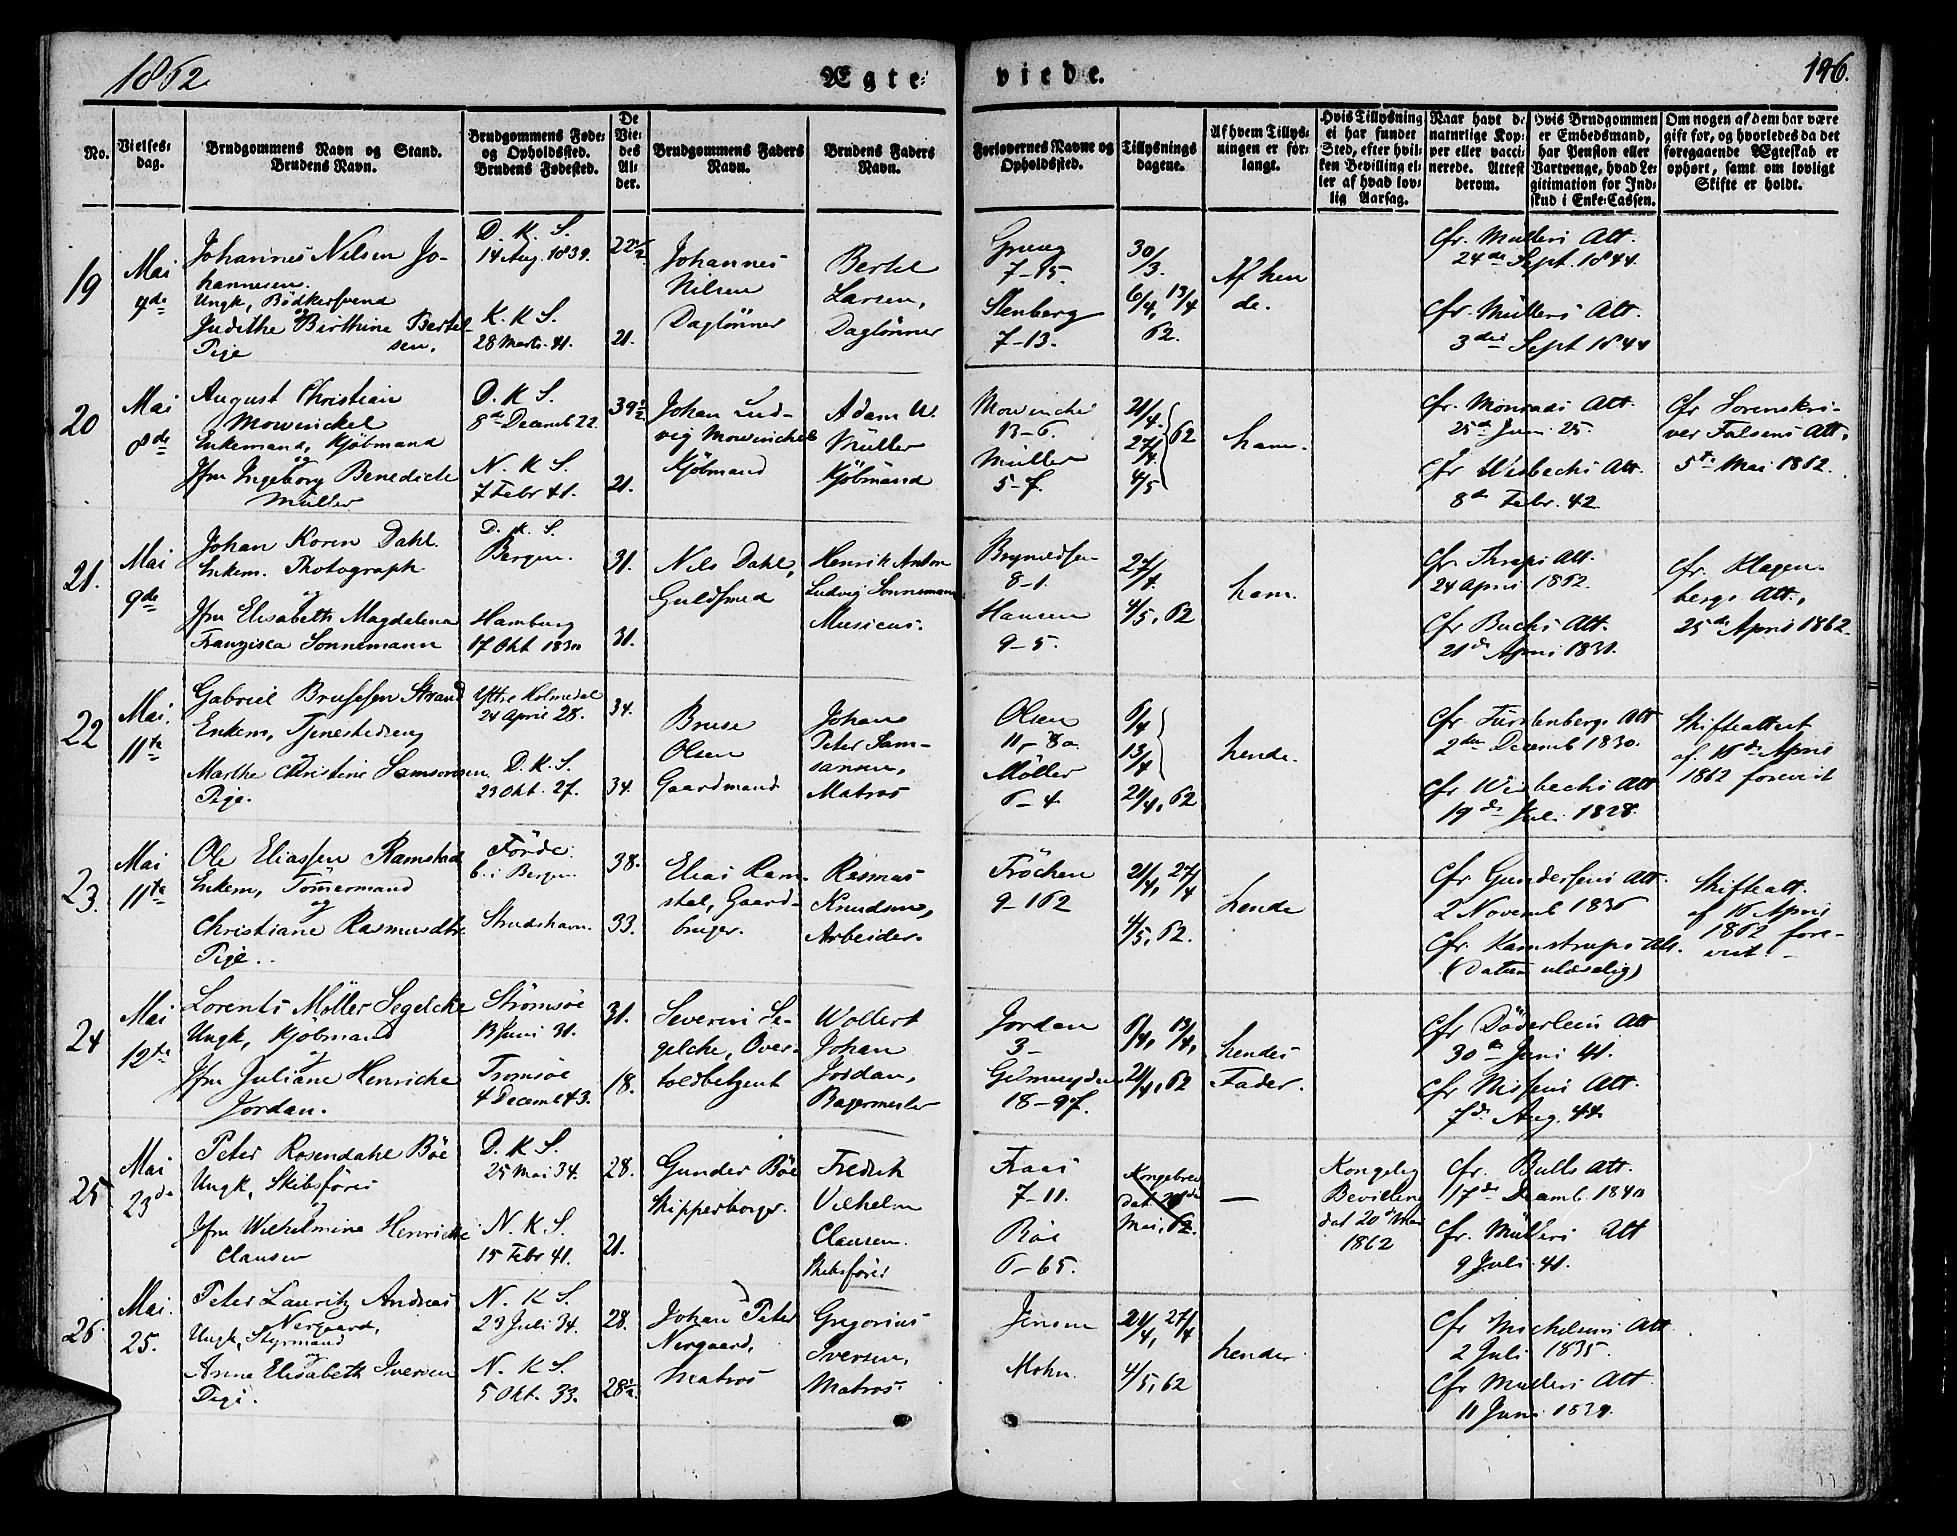 1862
Ægte-
viede.
146.
No.
Vielses-
dag.
Brudgommens Navn og Stand.
Brudens Navn.
Brudgommens Føde-
og Opholdssted.
Brudens Fødested.
De
Vie-
des
Al-
der.
Brudgommens Faders
Navn.
Brudens Faders
Navn.
Forlovernes Navne og
Opholdssted.
Tillysnings
dagene.
Af hvem Tillys-
ningen er for-
langt.
Hvis Tillysning
ei har fundet
Sted, efter hvil-
ken Bevilling el-
ler af hvad lov-
lig Aarsag.
Naar havt de
naturlige Kop-
per eller vacci-
nerede. Attest
derom.
Hvis Brudgommen
er Embedsmand,
har Pension eller
Vartpenge, hvad Le-
gitimation for Ind-
skud i Enke-Cassen.
Om nogen af dem har være
gift før, og hvorledes da det
foregaaende Ægteskab er
ophørt, samt om lovligt
Skifte er holdt.
19
Mai
4de
Johannes Nilsen Jo-
hannesen.
Ungk, Bödkersvend
og
Judithe Birthine Bertel-
sen.
Pige
D. K. S.
14 Aug. 1839.
K. K S.
28 Marts 41.
22 1/2
21.
Johannes
Nilsen
Daglönner
Bertel
Larsen,
Daglönner
7-95.
Stenberg
7-13.
30/3.
6/4, 13/4
62.
Af hen
de.
Cfr. Müllers Att.
24de Sept. 1844.
Cfr. Müllers Att.
3die Sept 1844
20
Mai
8de
August Christian
Mowinckel
Enkemand, Kjöbmand
og
Jfm Ingeborg Benedicte
Müller
D. K S.
8de Decemb 22.
N. K S.
7 Febr 41.
39 1/2
21.
Johan Lud-
vig Mowinckel
Kjöbmand
Adam W.
Müller
Kjöbmand
Mowinckel
13-6.
Müller
5-7.
21/4.
27/4
4/5
62
ham.
Cfr. Monrads Att.
25de Juni 25.
Cfr Wisbechs Att.
8de Febr. 42.
Cfr Sorenskri-
ver Falsens Att,
5te Mai 1862.
21.
Mai
9de
Johan Koren Dahl.
Enkem. Photograph
og
Jfm Elisabeth Magdelena
Franzisca Sonnemann
D. K. S.
Bergen.
Hamburg
17 Okt 1830
31.
31.
Nils Dahl,
Guldsmed
Henrik Anton
Ludvig Sonnemann
Musicus.
Brynildsen
8-1.
Hansen
9-5.
27/4
4/5, 62
ham.
Cfr. Thraps Att.
24 April 1862.
Cfr Buchs Att.
21de April 1831.
Cfr. Klagen-
bergs Att.,
25de April 1862.
22
Mai.
11te
Gabriel Brusesen Strand
Enkem, Tjenestedreng
og
Marthe Christine Samsonsen
Pige.
Yttre Holmedal
24 April 28.
D. K. S.
23 Okt. 27.
34.
34.
Bruse
Olsen
Gaardmand
Johan
Peter Sam-
sonsen,
Matros
Olsen
11-80
Möller
6-4.
6/4
13/4
21/4, 62
hende.
Cfr. Furstenbergs Att
2den Decemb 1830.
Cfr Wisbechs Att
19de Juli 1828.
Skifteattest
af. 16de April
1862 forevist
23.
Mai
11te
Ole Eliassen Ramstad
Enkem, Tömmermand
og
Christiane Rasmusdtr
Pige.
Förde.
b. i Bergen
Strudshavn.
38.
33.
Elias Ram
stad, Gaard-
bruger.
Rasmus
Knudsen,
Arbeider.
Fröchen
9-162
21/4, 27/4
4/5, 62.
hende
Cfr Gundersens Att.
2 Novemb 1836
Cfr. Kamstrups Att.
(Datum ulæselig)
Skifteatt.
af 16 April
1862 fore-
vist.
24
Mai
12te
Lorents Möller Segelcke
Ungk, Kjöbmand
og
Jfm Juliane Henricke
Jordan.
Strömsöe
13 Juni 31.
Tromsöe
4 Decemb 43.
31.
18.
Severin Se-
gelcke, Over-
toldbetjent
Wollert
Johan
Jordan,
Bagermester
Jordan
3-
18-97.
6/4, 13/4,
21/4, 62
hendes
Fader.
Cfr Döderleins Att
30te Juni 41.
Cfr. Nissens Att.
7de Aug. 44.
25
Mai
23de
Peter Rosendahl Böe
Ungk, Skibsförer
og
Jfm Wilhelmine Henricke
Clausen
D. K S.
25 Mai 34.
N. K S.
15 Febr 41.
28.
21.
Gunder Böe
Skipperborger.
Fredrik
Vilhelm
Clausen.
Skibsförer
Faas
7-11.
Böe
6-65.
Kongebrev
dat 20de
Mai, 62.
—
Kongelig
Bevilling
dat 20de Mai
1862
Cfr. Bulls Att.
17de Decemb. 1840
Cfr. Müllers Att
9 Juli 41.
26.
Mai.
25.
Peter Lauritz Andreas
Nergaard,
Ungk, Styrmand
og
Anne Elisabeth Iversen
Pige.
N. K S.
23 Juli 34.
N. K S.
5 Okt. 33.
28.
28 1/2
Johan Peter
Nergaard,
Matros
Gregorius
Iversen,
Matros.
Jensen
Mohn.
21/4, 27/4
4/5, 62
hender
Cfr Michelsens Att
2 Juli 1835.
Cfr Müllers Att
11 Juni 1839.